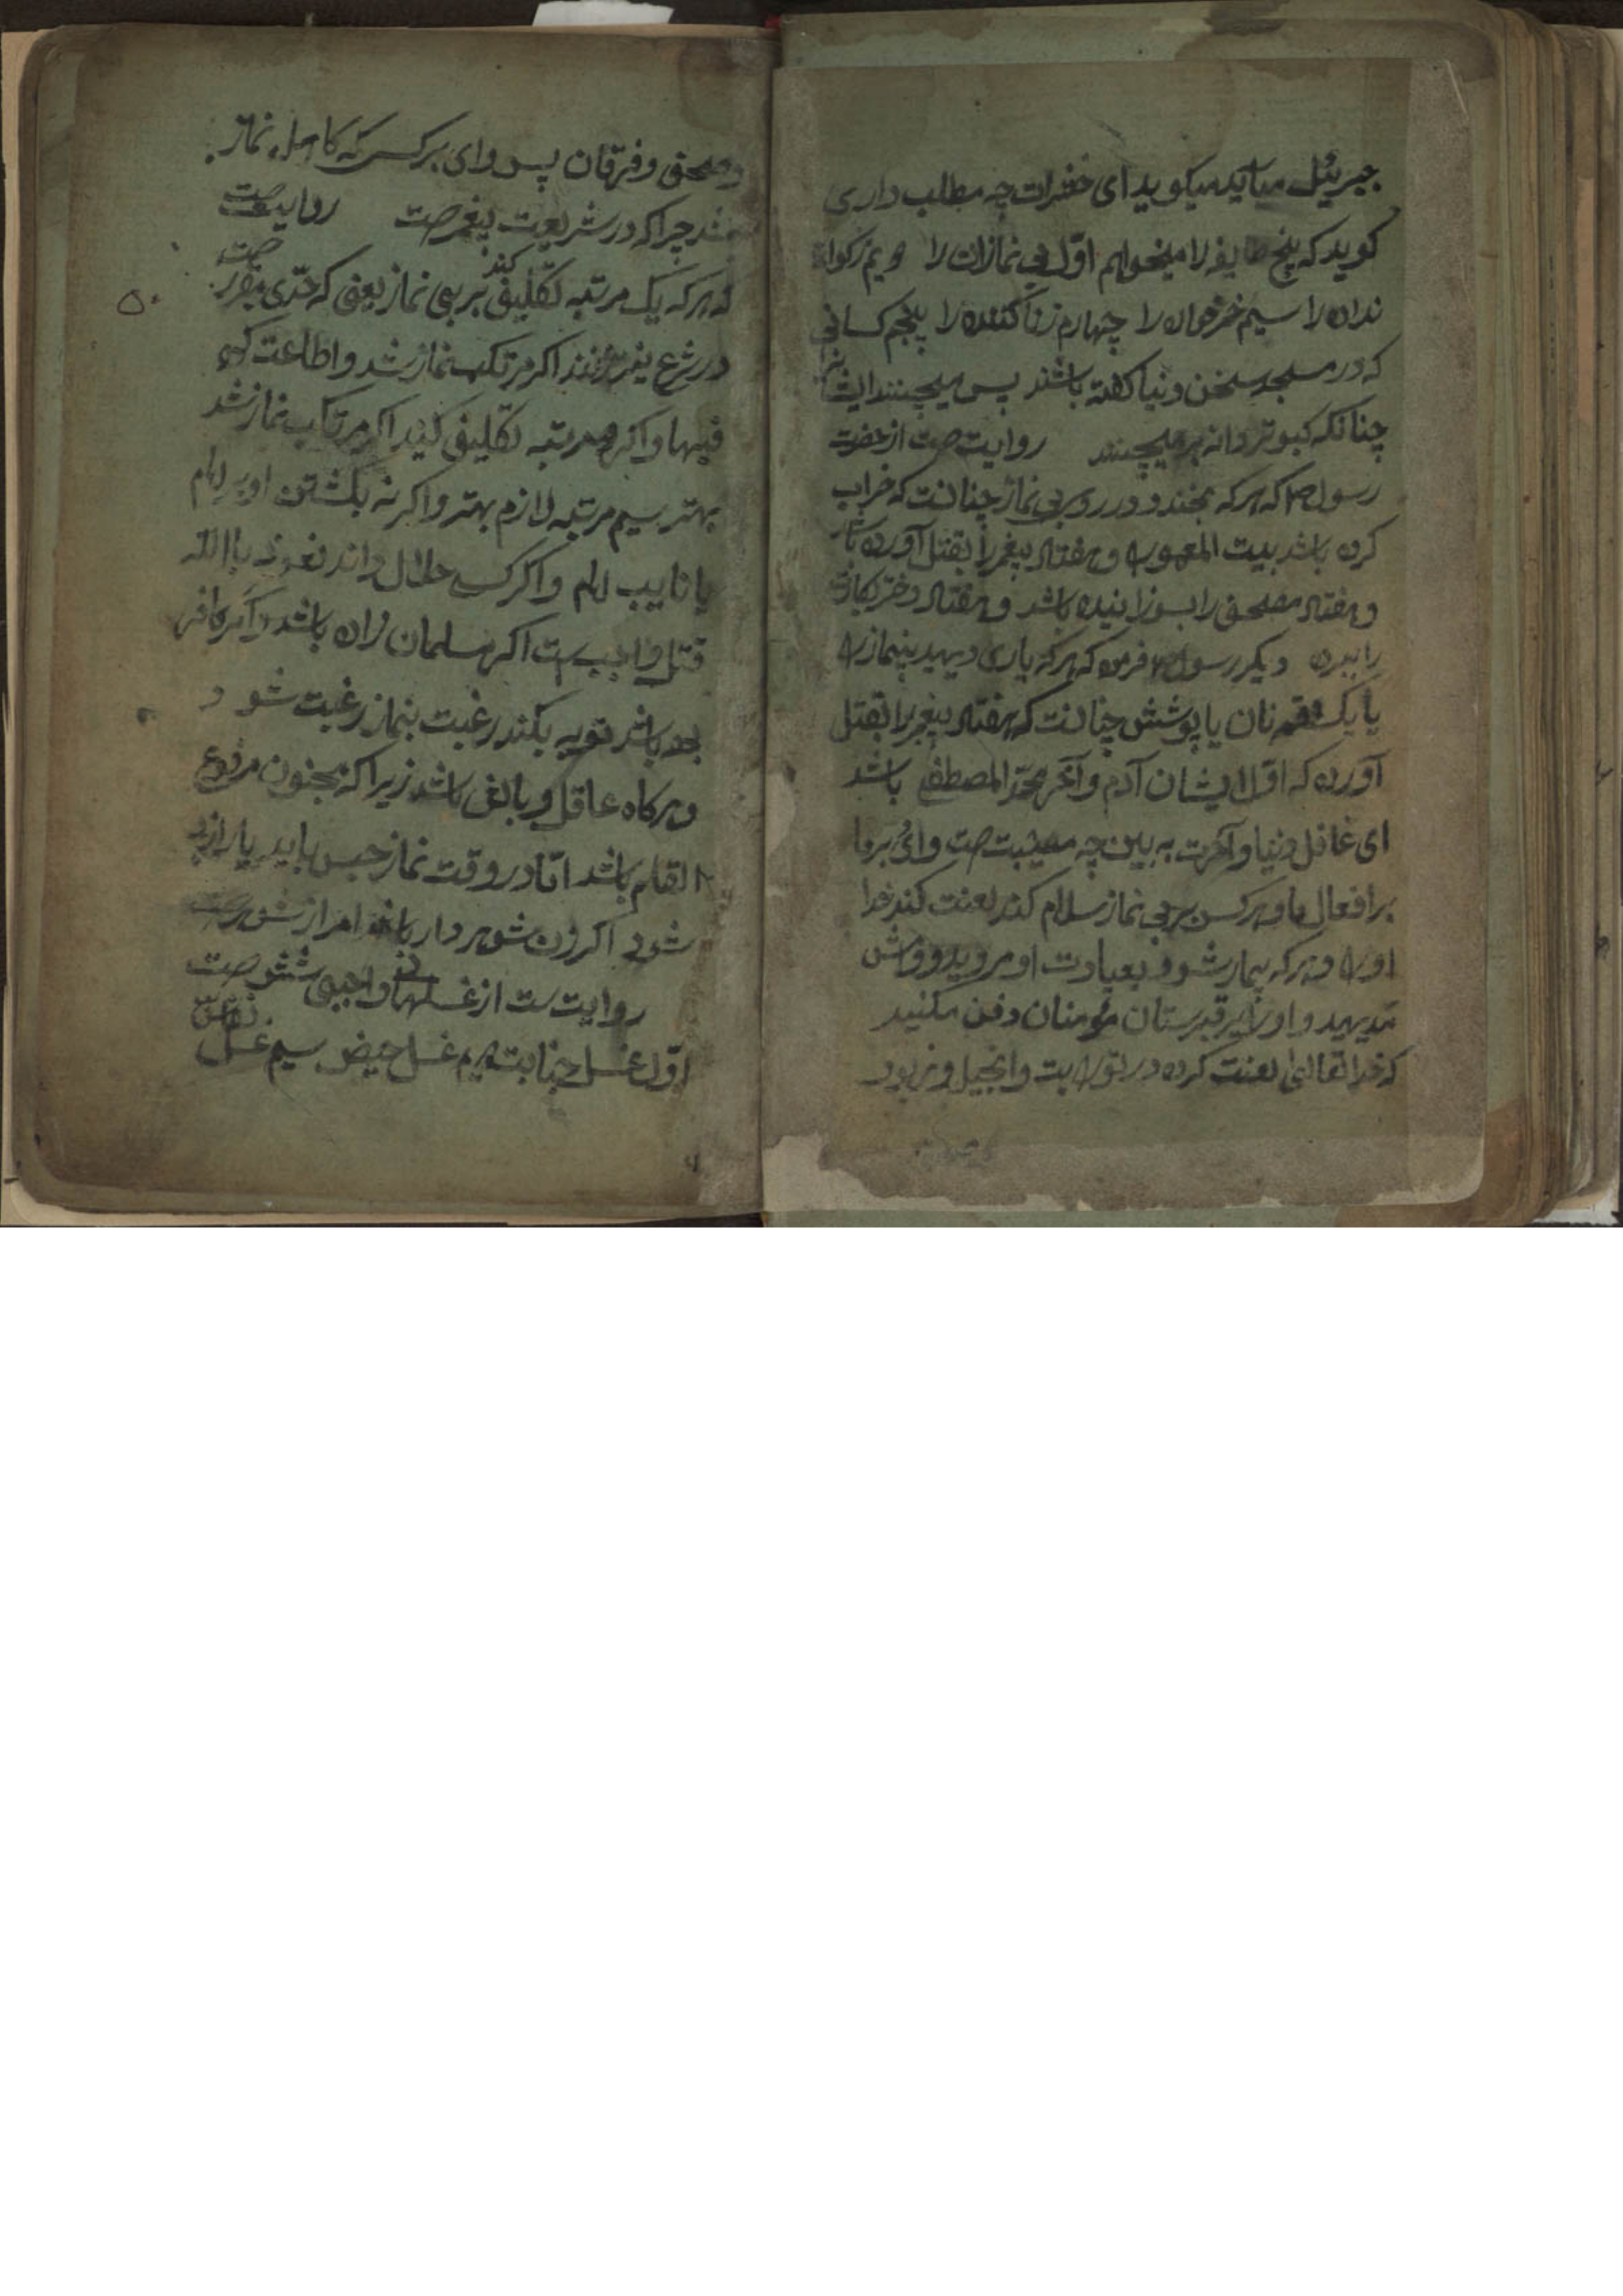 جبرئیل میآید میکوید ای حضرات چه مطلب داری
کوید که پنج طایفه را میخواهم اوّل بی نمازان را دویم زکواة
ندان را سیم خمرخواره را چهارم زنا کننده را پنجم کسانی
که در مسجد سخن دنیا کفته باشند پس میچینند ایشانرا
چنانکه کبوتر دانه برمیچیند روایت است از حضرت
رسول ص که هرکه بخندد در روی بی نماز چنانست که خراب
کرده باشد بیت المعمور و هفتاد پیغمبر را بقتل آورده باشد
و هفتاد مصحف را بسوزانیده باشد و هفتاد دختر بکارت
را ببرده دیکر رسول ص فرمود که هرکه یاری دهید بینمازرا
یا یک لقمه نان یا پوشش چنانست که هفتاد پیغمبر را بقتل
آورده که اوّل ایشان آدم و آخر محمّد المصطفی باشد
ای غافل دنیا و آخرت به بین چه مصیبت است وای بر ما
بر افعال ما و هرکس بر بی نماز سلام کند لعنت کند خدا
اورا و هرکه بیمار شود بعیادت او مروید و
ندیهید و اورا در قبرستان مؤمنان دفن مکنید
که خدا تعالی لعنت کرده در توریت و انجیل و زبور
و مصحف و فرقان پس وای بر کسی که کاهل نماز
چراکه در شریعت پیغمبر است روایت است
که هرکه یک مرتبه تکلیف کند بر بی نماز یعنی که حدّی مقرر است
۵۰
در شرع اکر مرتکب نماز شد و اطاعت کرد
فبها و اکرنه مرتبه تکلیف کنید اکر مرتکب نماز شد
بهتر سیم مرتبه لازم بهتر و اکر نه بکشتن او بر امام
یا نایب امام و اکر کسی حلال داند نعوذ باالله
قتل واجب است اکر مسلمان زاده باشد و اکر کافر
بچه باشد توبه بکند رغبت بنماز رغبت شود
و هرکاه عاقل و بالغ باشد زیرا که مجنون مرفوع
القلم باشد امّا در وقت نماز حبس باید
شوند اکر زن شوهر دار باشد
روایت ست از غسلهای واجبی شش است
اوّل غسل جنابت دویم غسل حیض سیم غسل نفاس